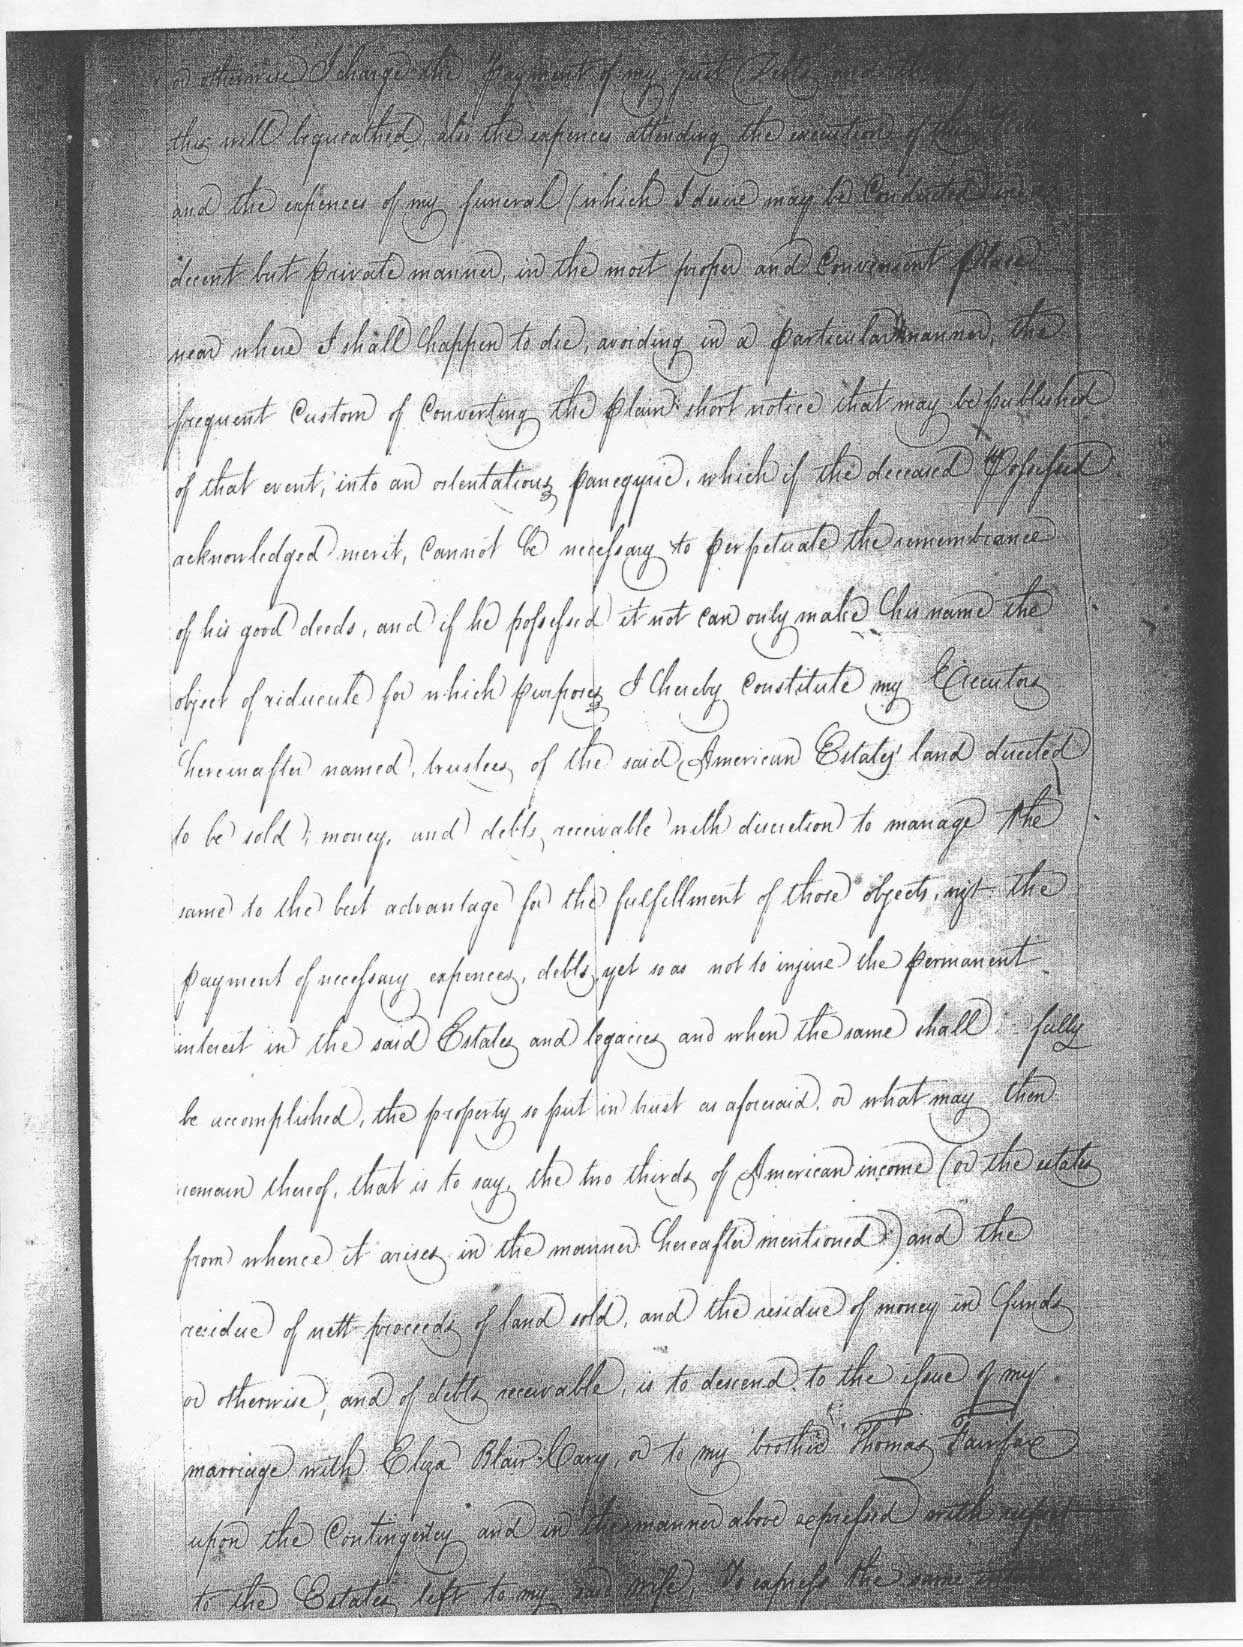 or otherwise I charge the Payment of my just Debts
this will bequeathed, also the expences attending the execution of this
and the expences of my funeral (which I desire may be Conducted in a
decent but private manner, in the most proper and Convenient Place
near where I shall happen to die, avoiding in a particular manner, the
frequent Custom of Converting the plain short notice that may be published
of that event, into an ostentatious panegyric, which if the deceased Possessed
acknowledged merit, Cannot be necessary to perpetuate the remembrance
of his good deeds, and if he possessed it not can only make his name the
object of riducule for which purposes I hereby constitute my Executors
hereinafter named, trustees of the said American Estates land directed
to be sold, money, and debts receivable with discretion to manage the
same to the best advantage for the fulfillment of those objects, the
payment of necessary expences, debts, yet so as not to injure the permanent
interest in the said Estates and legacies and when the same shall fully
be accomplished, the property so put in trust as aforesaid, or what may then
remain thereof, that is to say, the two thirds of American income (or the estates
from whence it arises in the manner hereafter mentioned) and the
residue of nett proceeds of land sold, and the residue of money in funds
or otherwise, and of debts receivable, is to descend to the issue of my
marriage with Eliza Blair Cary, or to my brother Thomas Fairfax
upon the Contingency and in the manner above expressed with respect
to the Estates left to my said wife, To express the same